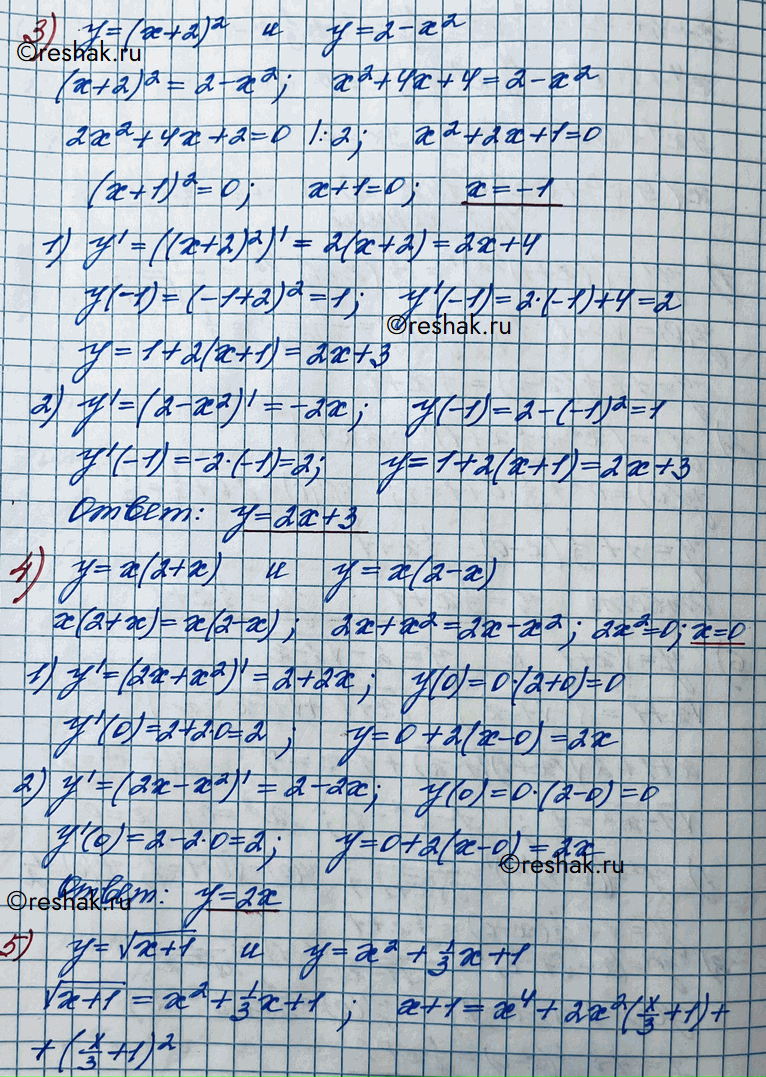 3) y=(x+2)² и y=2-x²
©reshak.ru
(x+2)²=2-x²; x²+4x+4=2-x²
2x²+4x+2=0 |:2; x²+2x+1=0
(x+1)²=0; x+1=0; x=-1
1) y'=((x+2)²)'=2(x+2)=2x+4
y(-1)=(-1+2)²=1; y'(-1)=2·(-1)+4=2
©reshak.ru
y=1+2(x+1)=2x+3
2) y'=(2-x²)'=-2x; y(-1)=2-(-1)²=1
y'(-1)=-2·(-1)=2; y=1+2(x+1)=2x+3
Ответ: y=2x+3
4) y=x(2+x) и y=x(2-x)
x(2+x)=x(2-x); 2x+x²=2x-x²; 2x²=0; x=0
1) y'=(2x+x²)'=2+2x; y(0)=0·(2+0)=0
y'(0)=2+2·0=2; y=0+2(x-0)=2x
2) y'=(2x-x²)'=2-2x; y(0)=0·(2-0)=0
y'(0)=2-2·0=2; y=0+2(x-0)=2x
©reshak.ru
Ответ: y=2x
©reshak.ru
5) y=√(x+1) и y=x²+1/3x+1
√(x+1)=x²+1/3x+1; x+1=x⁴+2x²(x/3+1)+
+(x/3+1)²